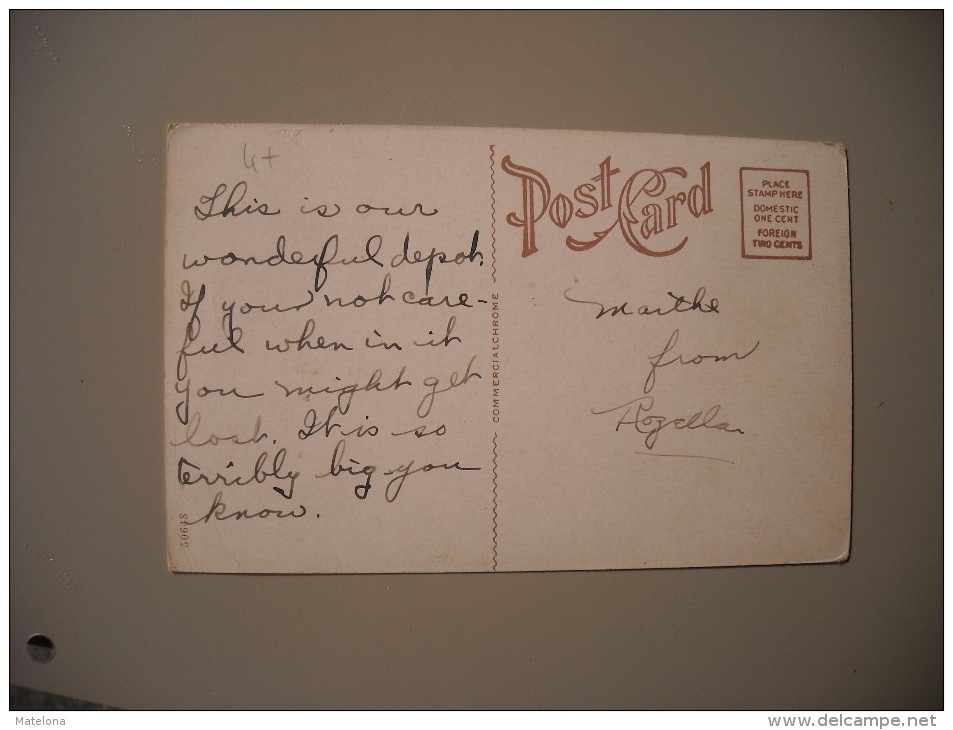 4+
This is our
wonderful depot.
If you not care-
ful when in it
you might get
lost. It is so
terribly big you
know.
50648
COMMERCIALCHROME
POST CARD
PLACE
STAMP HERE
DOMESTIC
ONE CENT
FOREIGN
TWO CENTS
from
Rozella
Matelona
www.delcampe.net